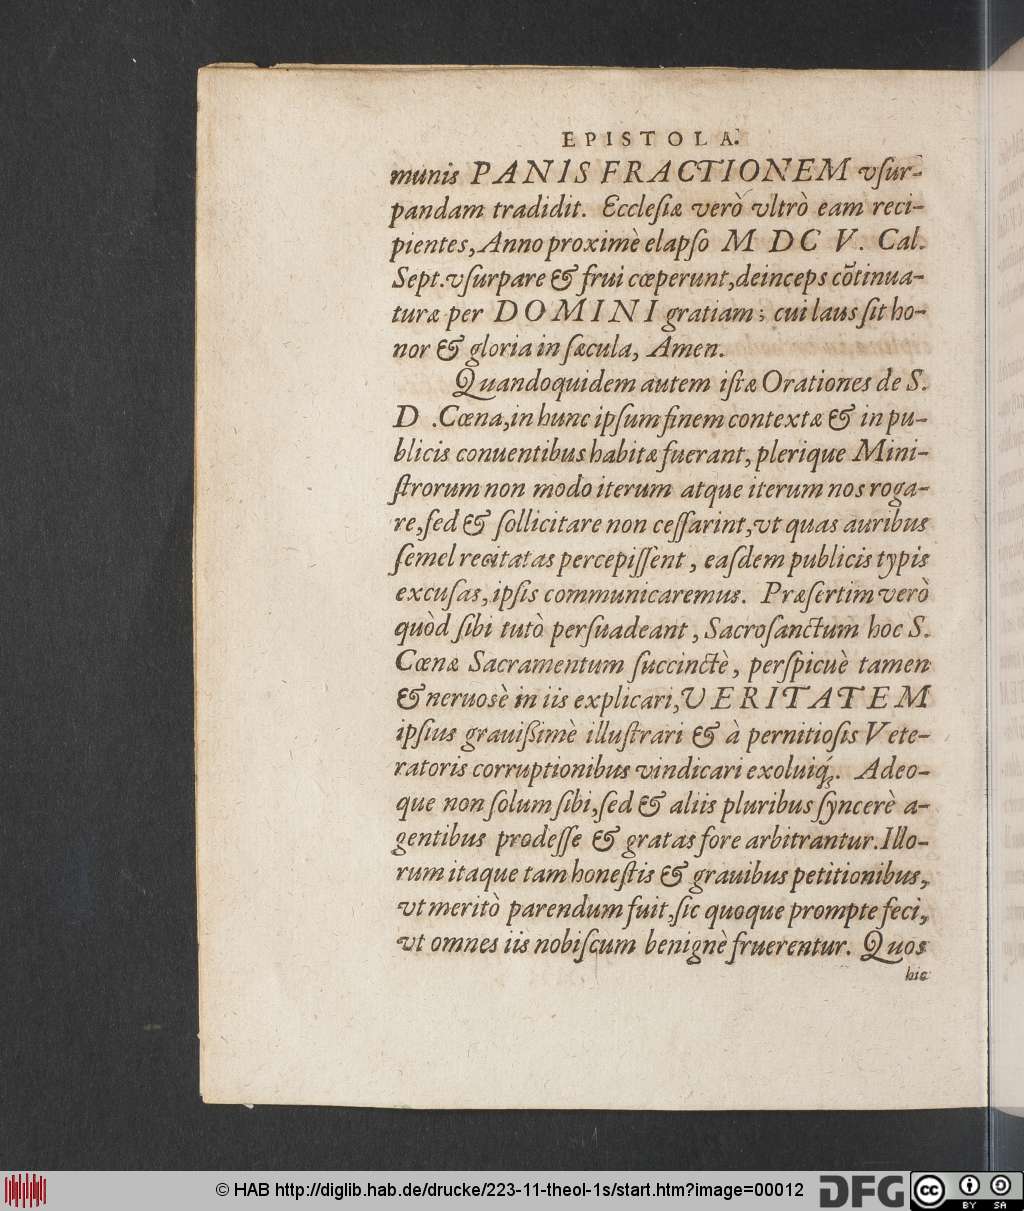 EPISTOLA.
munis PANIS FRACTIONEM vſur-
pandam tradidit. Eccleſiæ verò vltrò eam reci-
pientes, Anno proximè elapſo M DC V. Cal.
Sept. vſurpare & frui cœperunt, deinceps cōtinua-
turæ per DOMINI gratiam; cui laus ſit ho-
nor & gloria in ſæcula, Amen.
Quandoquidem autem iſtæ Orationes de S.
D. Cœna, in hunc ipſum finem contextæ & in pu-
blicis conuentibus habitæ fuerant, plerique Mini-
ſtrorum non modo iterum atque iterum nos roga-
re, ſed & ſollicitare non ceſſarint, vt quas auribus
ſemel recitatas percepiſſent, eaſdem publicis typis
excuſas, ipſis communicaremus. Præſertim verò
quòd ſibi tutò perſuadeant, Sacroſanctum hoc S.
Cœnæ Sacramentum ſuccinctè, perſpicuè tamen
& neruosè in iis explicari, VERITATEM
ipſius grauißimè illuſtrari & à pernitioſis Vete-
ratoris corruptionibus vindicari exoluiq́;. Adeo-
que non ſolum ſibi, ſed & aliis pluribus ſyncerè a-
gentibus prodeſſe & gratas fore arbitrantur. Illo-
rum itaque tam honeſtis & grauibus petitionibus,
vt meritò parendum fuit, ſic quoque prompte feci,
vt omnes iis nobiſcum benignè fruerentur. Quos
hic
© HAB http://diglib.hab.de/drucke/223-11-theol-1s/start.htm?image=00012
DFG
cc
BY SA